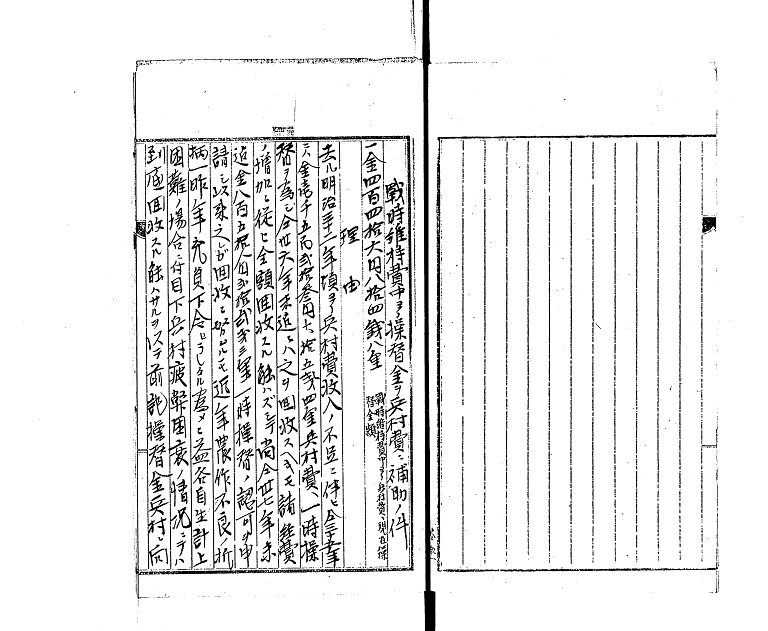 戰時維持費中ヨリ操替金ヲ兵村費ニ補助ノ件
一金四百四拾六円八拾四錢八厘
戰時維持費中ヨリ兵村費ヘ現在操
替金額
理由
去ル明治三十二年頃ヨリ兵村費收入ノ不足ニ伴ヒ仝三十五年
ニ金壱千五百弐拾参円七拾五銭四厘兵村費ヘ一時操
替ヲ為シ仝卅六年末迠ニハ之ヲ回收スヘキモ諸経費
ノ増加ニ従ヒ全額回收スル能ハズシテ尚仝卅七年末
迠金八百五拾八円弐拾弐銭三厘一時操替ノ認可ヲ申
請シ以来之レガ回收ニ努ムルモ近年農作不良ノ折
柄一昨年充員下令セラレタル為メニ益各自生計上
困難ノ場合ニ付目下兵村疲弊困衰ノ情況ニテハ
到底回收スル能ハサルヲ以テ前記操替金兵村ニ向